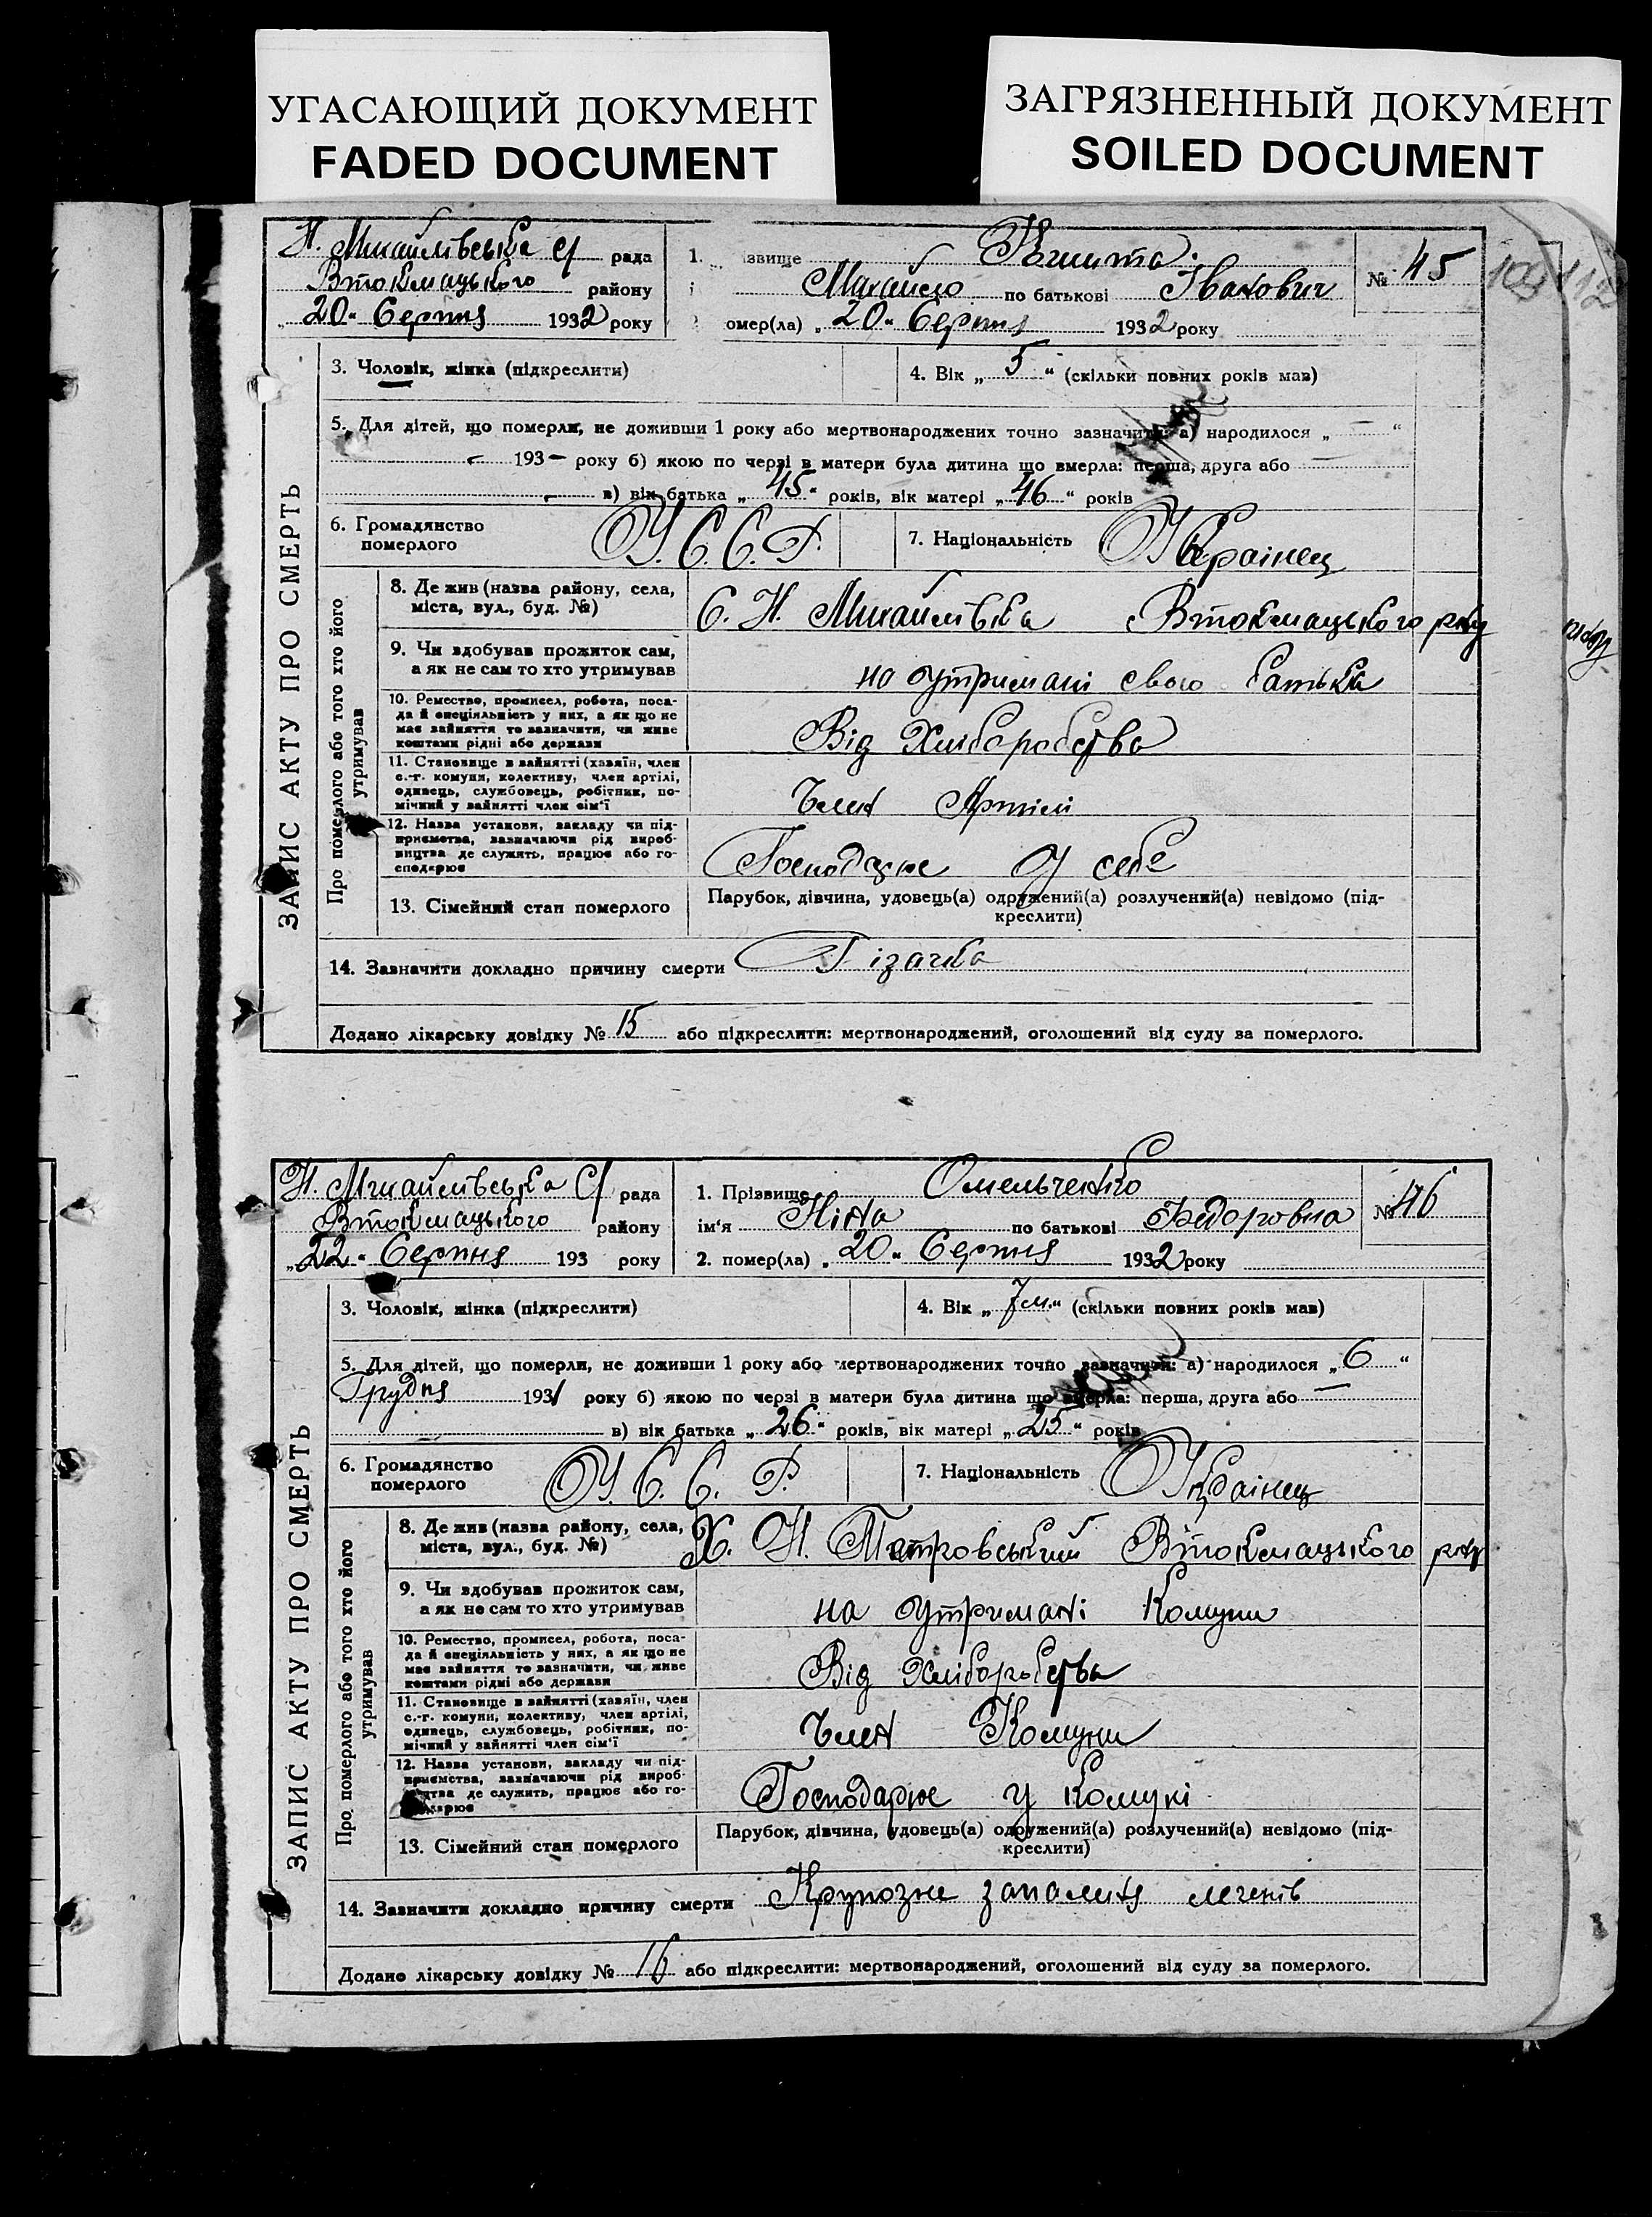 УГАСАЮЩИЙ ДОКУМЕНТ
FADED DOCUMENT
ЗАГРЯЗНЕННЫЙ ДОКУМЕНТ
SOILED DOCUMENT
Н. Михайлівська с/ рада
Втокмацького району
„20“ Серпня 1932 року
1. ізвище
Михайло по батькові Іванович
омер(ла) „20“ Серпня 1932 року
№ 45
ЗАПИС АКТУ ПРО СМЕРТЬ
3. Чоловік, жінка (підкреслити)
4. Вік „5“ (скільки повних років мав)
5. Для дітей, що померли, не доживши 1 року або мертвонароджених точно зазначити: а) народилося „—“
— 193— року б) якою по черзі в матери була дитина що вмерла: перша, друга або
в) вік батька „45“ років, вік матері „46“ років
6. Громадянство померлого У.С.С.Р.
7. Національність Українец
Про померлого або того хто його утримував
8. Де жив (назва району, села, міста, вул., буд. №) С. Н. Михайлівка Втокмацького р-ну
9. Чи здобував прожиток сам, а як не сам то хто утримував на утримані свого батька
10. Ремество, промисел, робота, посада й спеціяльність у них, а як що не має зайняття то зазначити, чи живе коштами рідні або держави Від Хліборобства
11. Становище в зайнятті (хазяїн, член с.-г. комуни, колективу, член артілі, одинець, службовець, робітник, помічний у зайнятті член сім'ї Член Артілі
12. Назва установи, закладу чи підприємства, зазначаючи рід виробництва де служить, працює або господарює Господарює У себе
13. Сімейний стан померлого
Парубок, дівчина, удовець(а) одружений(а) розлучений(а) невідомо (підкреслити)
14. Зазначити докладно причину смерти
Додано лікарську довідку № 15 або підкреслити: мертвонароджений, оголошений від суду за померлого.
Н. Михайлівська с/ рада
Втокмацького району
„22“ Серпня 193 року
1. Прізвище Омельченко
ім'я Ніна по батькові Федоровна
2. помер(ла) „20“ Серпня 1932 року
№ 46
ЗАПИС АКТУ ПРО СМЕРТЬ
3. Чоловік, жінка (підкреслити)
4. Вік „7м“ (скільки повних років мав)
5. Для дітей, що померли, не доживши 1 року або мертвонароджених точно зазначити: а) народилося „6“
Грудня 1931 року б) якою по черзі в матери була дитина що вмерла: перша, друга або
в) вік батька „26“ років, вік матері „25“ років
6. Громадянство померлого У.С.С.Р.
7. Національність Українец
Про померлого або того хто його утримував
8. Де жив (назва району, села, міста, вул., буд. №) Х. Н. Петровський Втокмацького р-ну
9. Чи здобував прожиток сам, а як не сам то хто утримував на утримані Комуни
10. Ремество, промисел, робота, посада й спеціяльність у них, а як що не має зайняття то зазначити, чи живе коштами рідні або держави Від Хліборобства
11. Становище в зайнятті (хазяїн, член с.-г. комуни, колективу, член артілі, одинець, службовець, робітник, помічний у зайнятті член сім'ї Член Комуни
12. Назва установи, закладу чи підприємства, зазначаючи рід виробництва де служить, працює або господарює Господарює у комуні
13. Сімейний стан померлого
Парубок, дівчина, удовець(а) одружений(а) розлучений(а) невідомо (підкреслити)
14. Зазначити докладно причину смерти Крупозне запаленя легенів
Додано лікарську довідку № 16 або підкреслити: мертвонароджений, оголошений від суду за померлого.